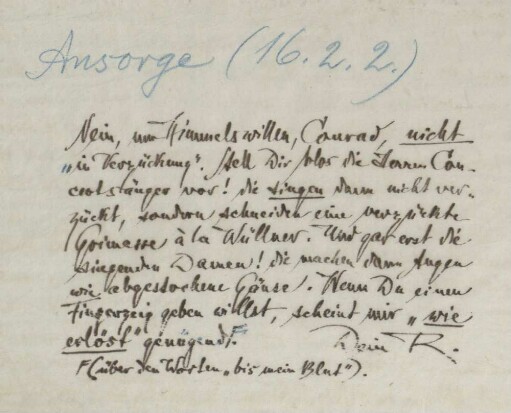 Ansorge (16.2.2.)
Nein, um Himmelswillen, Conrad, nicht
„in Verzückung“. Stell Dir blos die Herren Con-
certsänger vor! die singen dann nicht ver-
zückt, sondern schneiden eine verzückte
Grimasse à la Wüllner. Und gar erst die
singenden Damen! die machen dann Augen
wie abgestochene Gänse. Wenn Du einen
Fingerzeig geben willst, scheint mir „wie
erlöst“ genügend.
Dein R.
(über den Worten „bis mein Blut“).